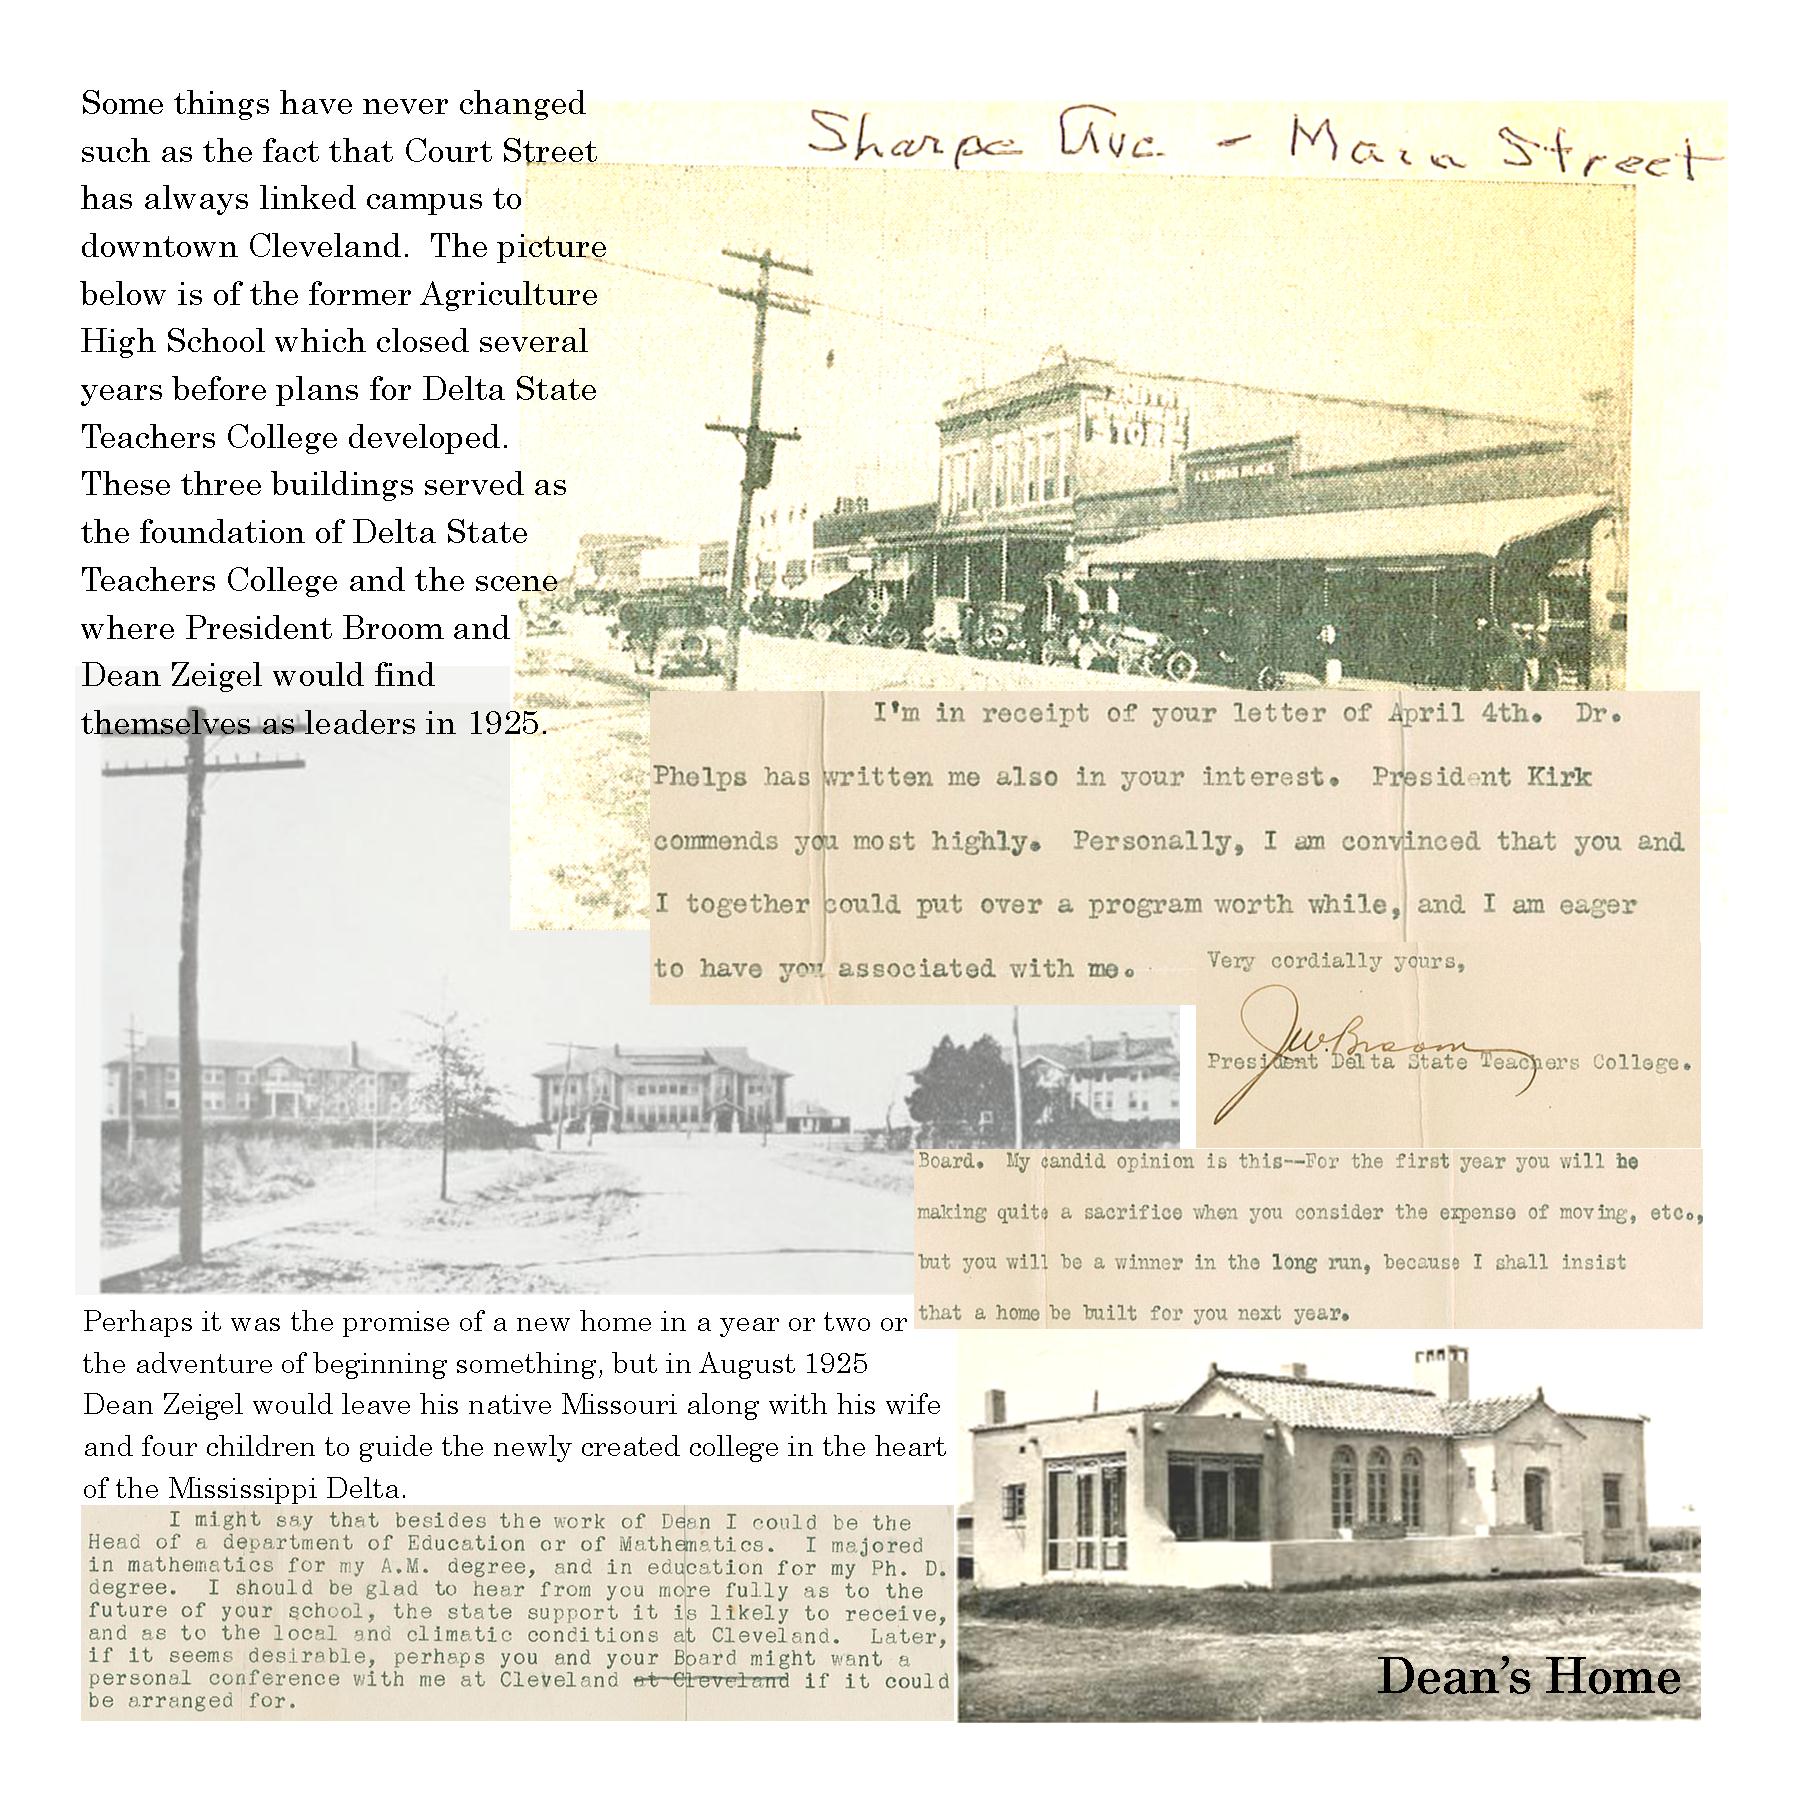 Some things have never changed
such as the fact that Court Street
has always linked campus to
downtown Cleveland.  The picture
below is of the former Agriculture
High School which closed several
years before plans for Delta State
Teachers College developed.
These three buildings served as
the foundation of Delta State
Teachers College and the scene
where President Broom and
Dean Zeigel would find
themselves as leaders in 1925.
Sharpe Ave - Main Street
STORE
I'm in receipt of your letter of April 4th.  Dr.
Phelps has written me also in your interest.  President Kirk
commends you most highly.  Personally, I am convinced that you and
I together could put over a program worth while, and I am eager
to have you associated with me.
Very cordially yours,
J.W. Broom
President Delta State Teachers College.
Board.  My candid opinion is this--For the first year you will be
making quite a sacrifice when you consider the expense of moving, etc.,
but you will be a winner in the long run, because I shall insist
that a home be built for you next year.
Perhaps it was the promise of a new home in a year or two or
the adventure of beginning something, but in August 1925
Dean Zeigel would leave his native Missouri along with his wife
and four children to guide the newly created college in the heart
of the Mississippi Delta.
I might say that besides the work of Dean I could be the
Head of a department of Education or of Mathematics.  I majored
in mathematics for my A.M. degree, and in education for my Ph. D.
degree.  I should be glad to hear from you more fully as to the
future of your school, the state support it is likely to receive,
and as to the local and climatic conditions at Cleveland.  Later,
if it seems desirable, perhaps you and your Board might want a
personal conference with me at Cleveland at Cleveland if it could
be arranged for.
Dean's Home